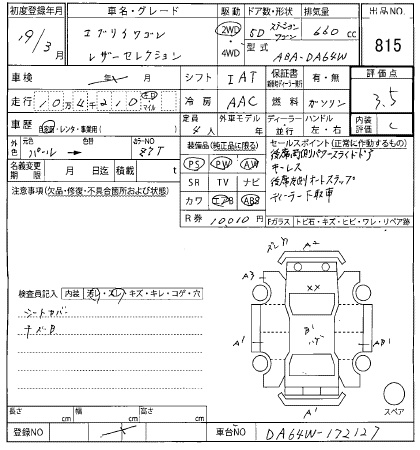 初度登録年月 車名・グレード 駆動 ドア数・形状 排気量 出品NO.
19/3 エブリイワゴン 2WD 5D ステーションワゴン 660 cc 815
レザーセレクション 4WD 型式 ABA-DA64W
車検 年 月 シフト IAT 保証書 有・無 評価点
走行 10万4千210 キロ マイル 冷房 AAC 燃料 ガソリン 3.5
車歴 自家用・レンタ・事業用( ) 定員 4人 外車モデル 年 ディーラー 並行 ハンドル 左・右 内装評価 C
外色 元色 パール → 色替 カラーNO Z7T
装備品(純正品に限る) セールスポイント(正常に作動するもの)
名義変更期限 月 日迄 積載 t
PS PW AW 後席両側パワースライドドア
キーレス
注意事項(欠品・修復・不具合箇所および状態) SR TV ナビ 後席左側オートステップ
カワ エアB ABS ディーラー下取車
R券 10010円 Fガラス トビ石・キズ・ヒビ・ワレ・リペア跡
A2
A3
XX
検査員記入 内装 汚レ・スレ・キズ・キレ・コゲ・穴
シートカバー
ナビB
A1 B1 ハゲ AB1
A1
スペア
長さ cm 幅 cm 高さ cm
登録NO 車台NO DA64W-172127